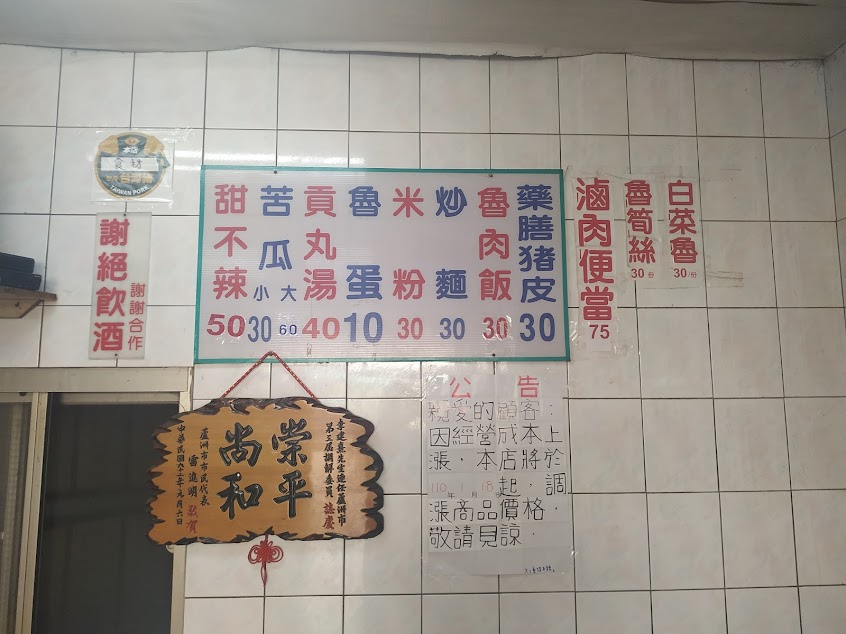 本店
食材
TAIWAN PORK
謝絕飲酒
謝謝合作
藥膳豬皮 30
魯肉飯 30
炒麵 30
米粉 30
魯蛋 10
貢丸湯 40
苦瓜 小30 大60
甜不辣 50
滷肉便當 75
魯筍絲 30/份
白菜魯 30/份
李建真先生連任蘆洲市
第三屆調解委員 誌慶
崇平
尚和
蘆洲市市民代表
雷進明 敬賀
中華民國九十二年元月六日
公告
親愛的顧客:
因經營成本上
漲,本店將於
110年1月18日起,調
漲商品價格,
敬請見諒.